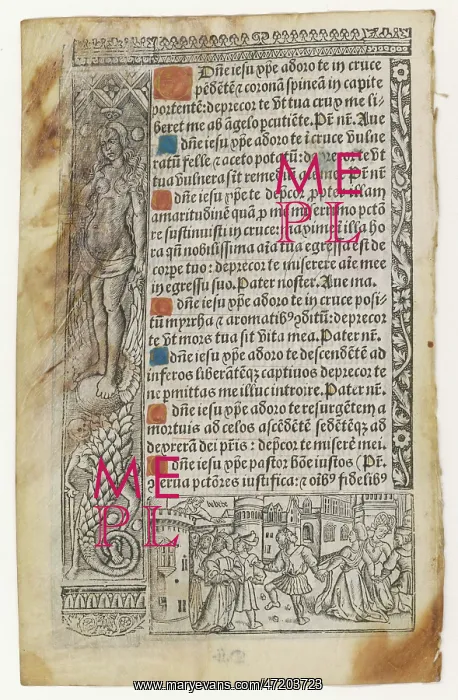 Dñe iesu xp̄e adoro te in cruce
pẽdẽtẽ ⁊ coronã spineã in capite
portentẽ: deprecor te vt tua crux me li-
beret me ab ãgelo pcutiẽte. Pr̃ nr̃. Aue
dñe iesu xp̄e adoro te ĩ cruce vulne
ratũ felle ⁊ aceto potatũ: deprecor te vt
tua vulnera sĩt remediũ aĩe mee. Pr̃ nr̃
dñe iesu xp̄e te dep̃cor propter illam
amaritudinẽ quã p me miserrimo pctõ
re sustinuisti in cruce: maxime illa ho
ra qñ nobilissima aĩa tua egressa est de
corpe tuo: deprecor te miserere aĩe mee
in egressu suo. Pater noster. Aue ma.
dñe iesu xp̄e adoro te in cruce posi-
tũ myrrha ⁊ aromatibꝰ ꝯditũ: deprecor
te vt mors tua sit vita mea. Pater nr̃.
dñe iesu xp̄e adoro te descendẽtẽ ad
inferos liberãtẽqꝫ captiuos deprecor te
ne pmittas me illuc introire. Pater nr̃.
dñe iesu xp̄e adoro te resurgẽtem a
mortuis ad celos ascẽdẽtẽ sedẽtẽqꝫ ad
dexterã dei pr̃is: dep̃cor te miserẽ mei.
dñe iesu xp̄e pastor bõe iustos (Pr̃.
ꝯserua pctõres iustifica: ⁊ oĩbꝰ fidelibꝰ
ME
PL
ME
PL
www.maryevans.com/47203723